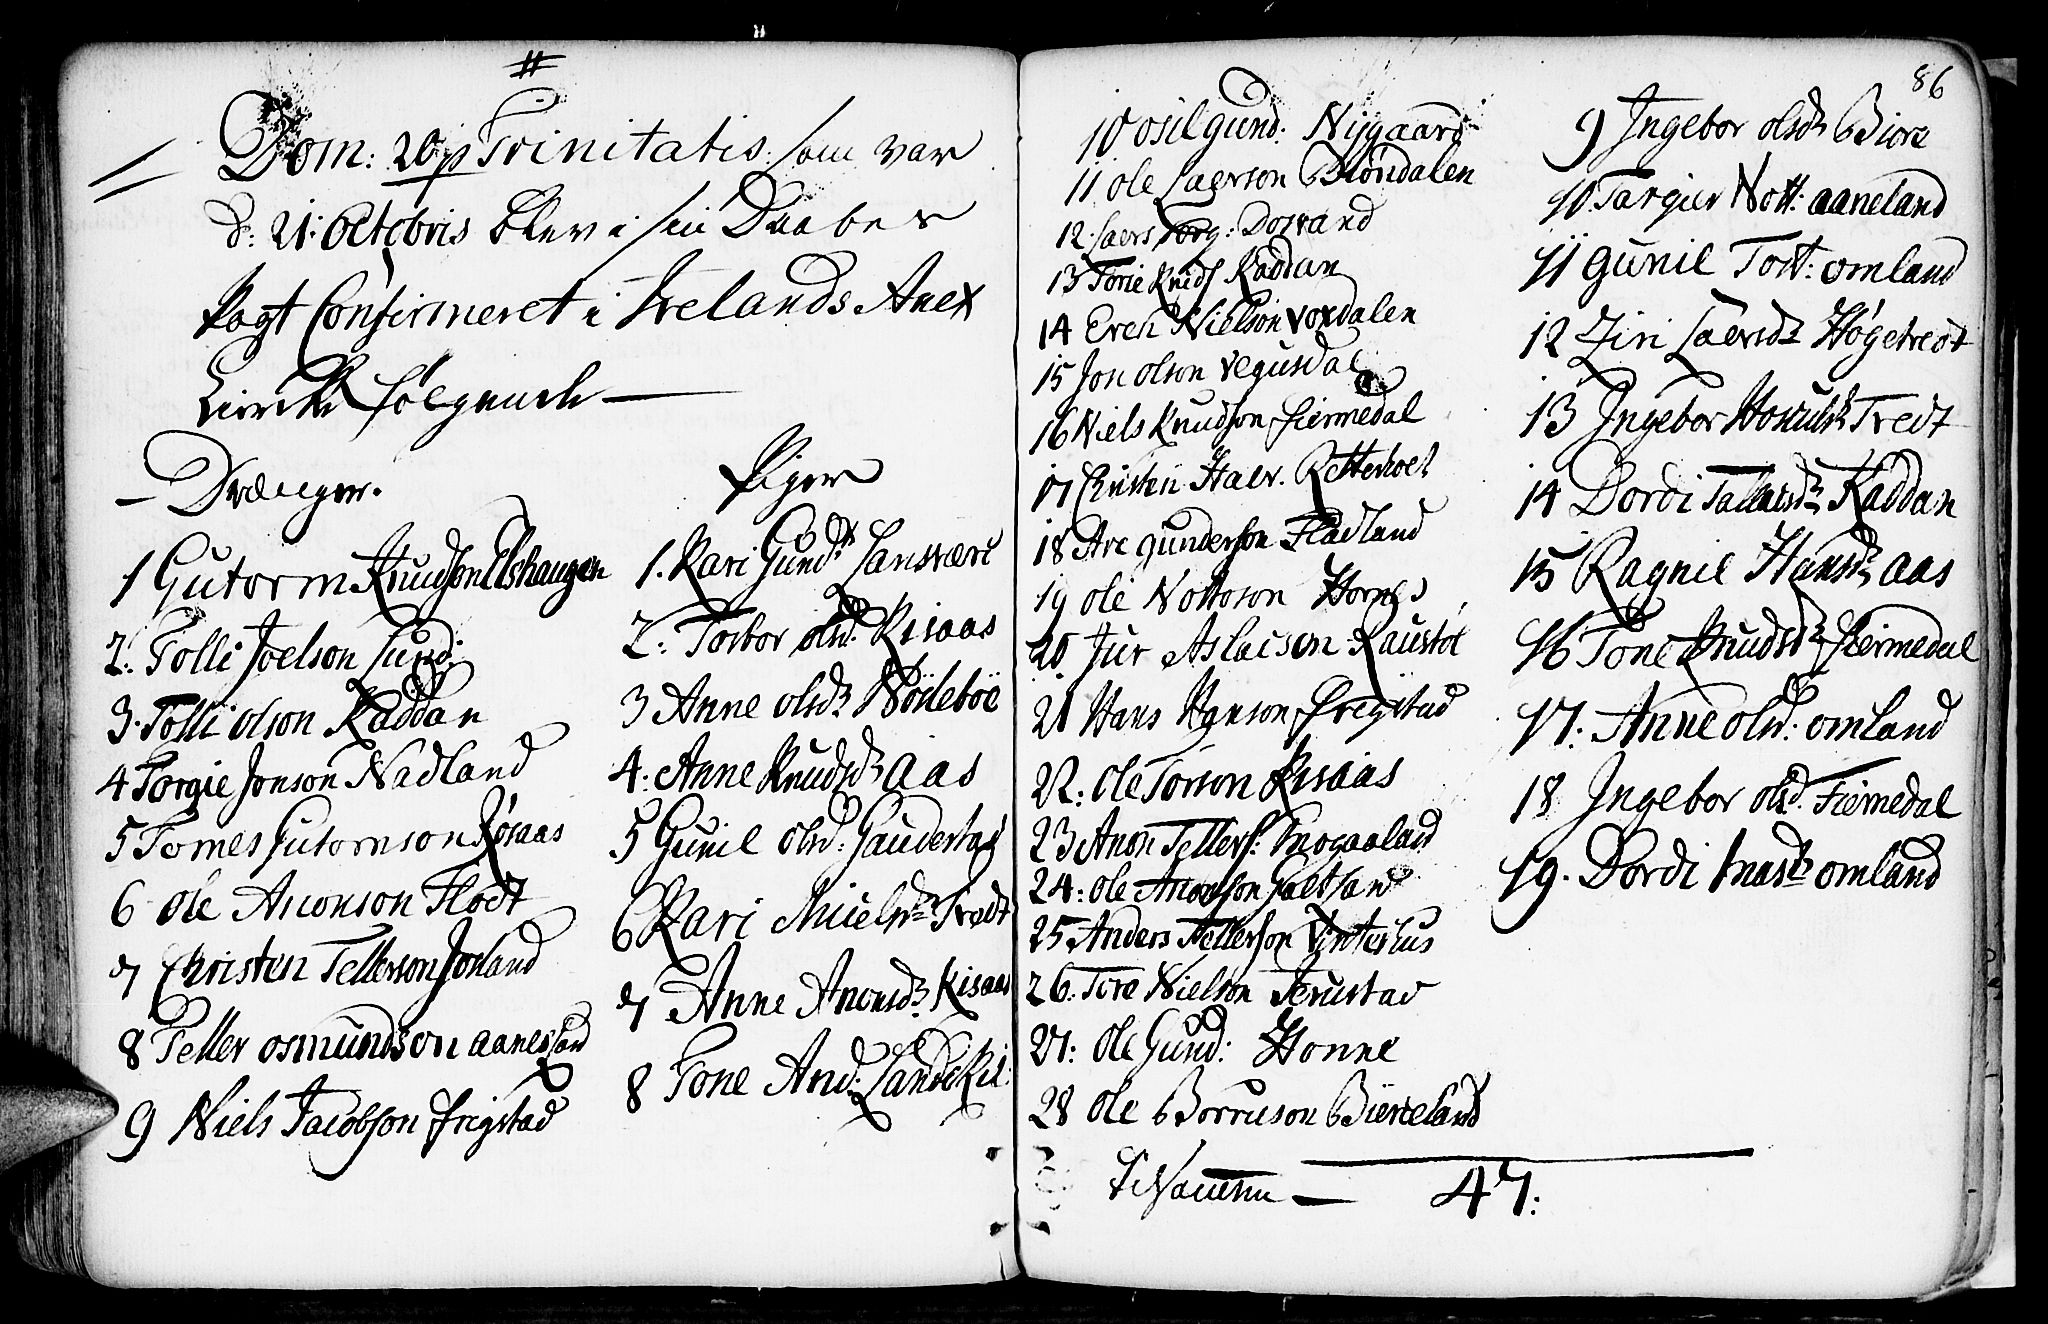 Dom: 20 p Trinitatis som var
d: 21: Octobris blev i sin Daabes
Pagt Confirmeret i Irelands Anex
Kircke følgende —
— Drænger.
1 Gutorm Knudson Elshaugen
2: Tolli Joelson Lund:
3. Tolli olson Kaddan
4 Torgie Jonson Nadland
5 Tomes Gutormson Røsaas
6 Ole Anonson Flodt
7 Christen Tellerson Jorland
8 Teller osmundson aanesland
9 Niels Jacobson Frigstad
Piger
1. Kari Gundr Lansværi
2: Torbor olsd: Risaas
3 Anne olsdr Nödeböe
4: Anne Knudsdr aas
5 Gunil olsd: Gauderstad
6 Kari Mielsdr Tredt
7 Anne Anonsdr Risaas
8 Tone And: Landekil:
86
10 osil gund: Nygaard
11 ole Laerson Blöndalen
12. Laers Torg: Dosvand
13 Torie Knuds Kaddan
14 Eren Nielson Voxdalen
15 Jon olson Vegusdal
16 Niels Knudson Fiermedal
17 Christen Halv. Retterholt
18 Are gunderson Fladland
19 ole Nottoson Hornes
20 Jur Aslacson Raustöl
21 Hans Hanson Frigstad
22: ole Torson Risaas
23 Anon Tellers: Knogaaland
24: ole Anonson
25 Anders Tellerson Vinterhus
26: Tore Nielson Terustad
27: ole Gund: Honne
28 ole Borruson Biereland
9 Ingebor olsdr Biore
10. Targier Nott: aaneland
11 gunil Tort: omland
12 Ziri Laersdr Høgetredt
13 Ingebor Tredt
14 Dordi Tallaisdr Kaddan
15 Ragnil Hansdr aas
16 Tone Knudsdr Fiermedal
17: Anne olsd: omland
18 Ingebor olsd. Fiermedal
19. Dordi omland
— 47: